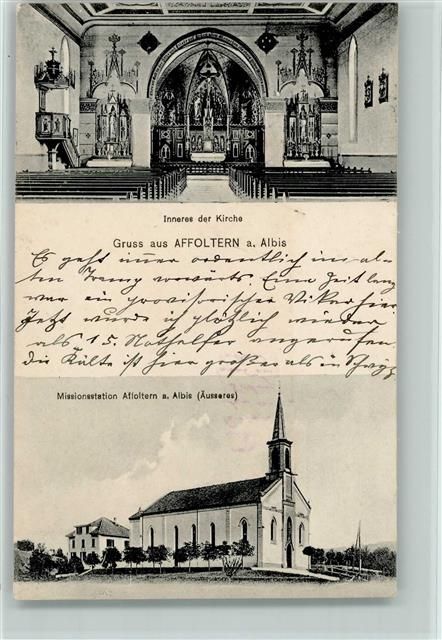 Inneres der Kirche
Gruss aus AFFOLTERN a. Albis
Es geht immer ordentlich im al-
ten Tramp vorwärts. Eine Zeit lang
war ein provisorischer Vikar hier.
Jetzt wurde ich plötzlich wieder
als 15. Nothelfer angerufen.
Die Kälte ist hier größer als in Schwyz
Missionsstation Affoltern a. Albis (Äusseres)